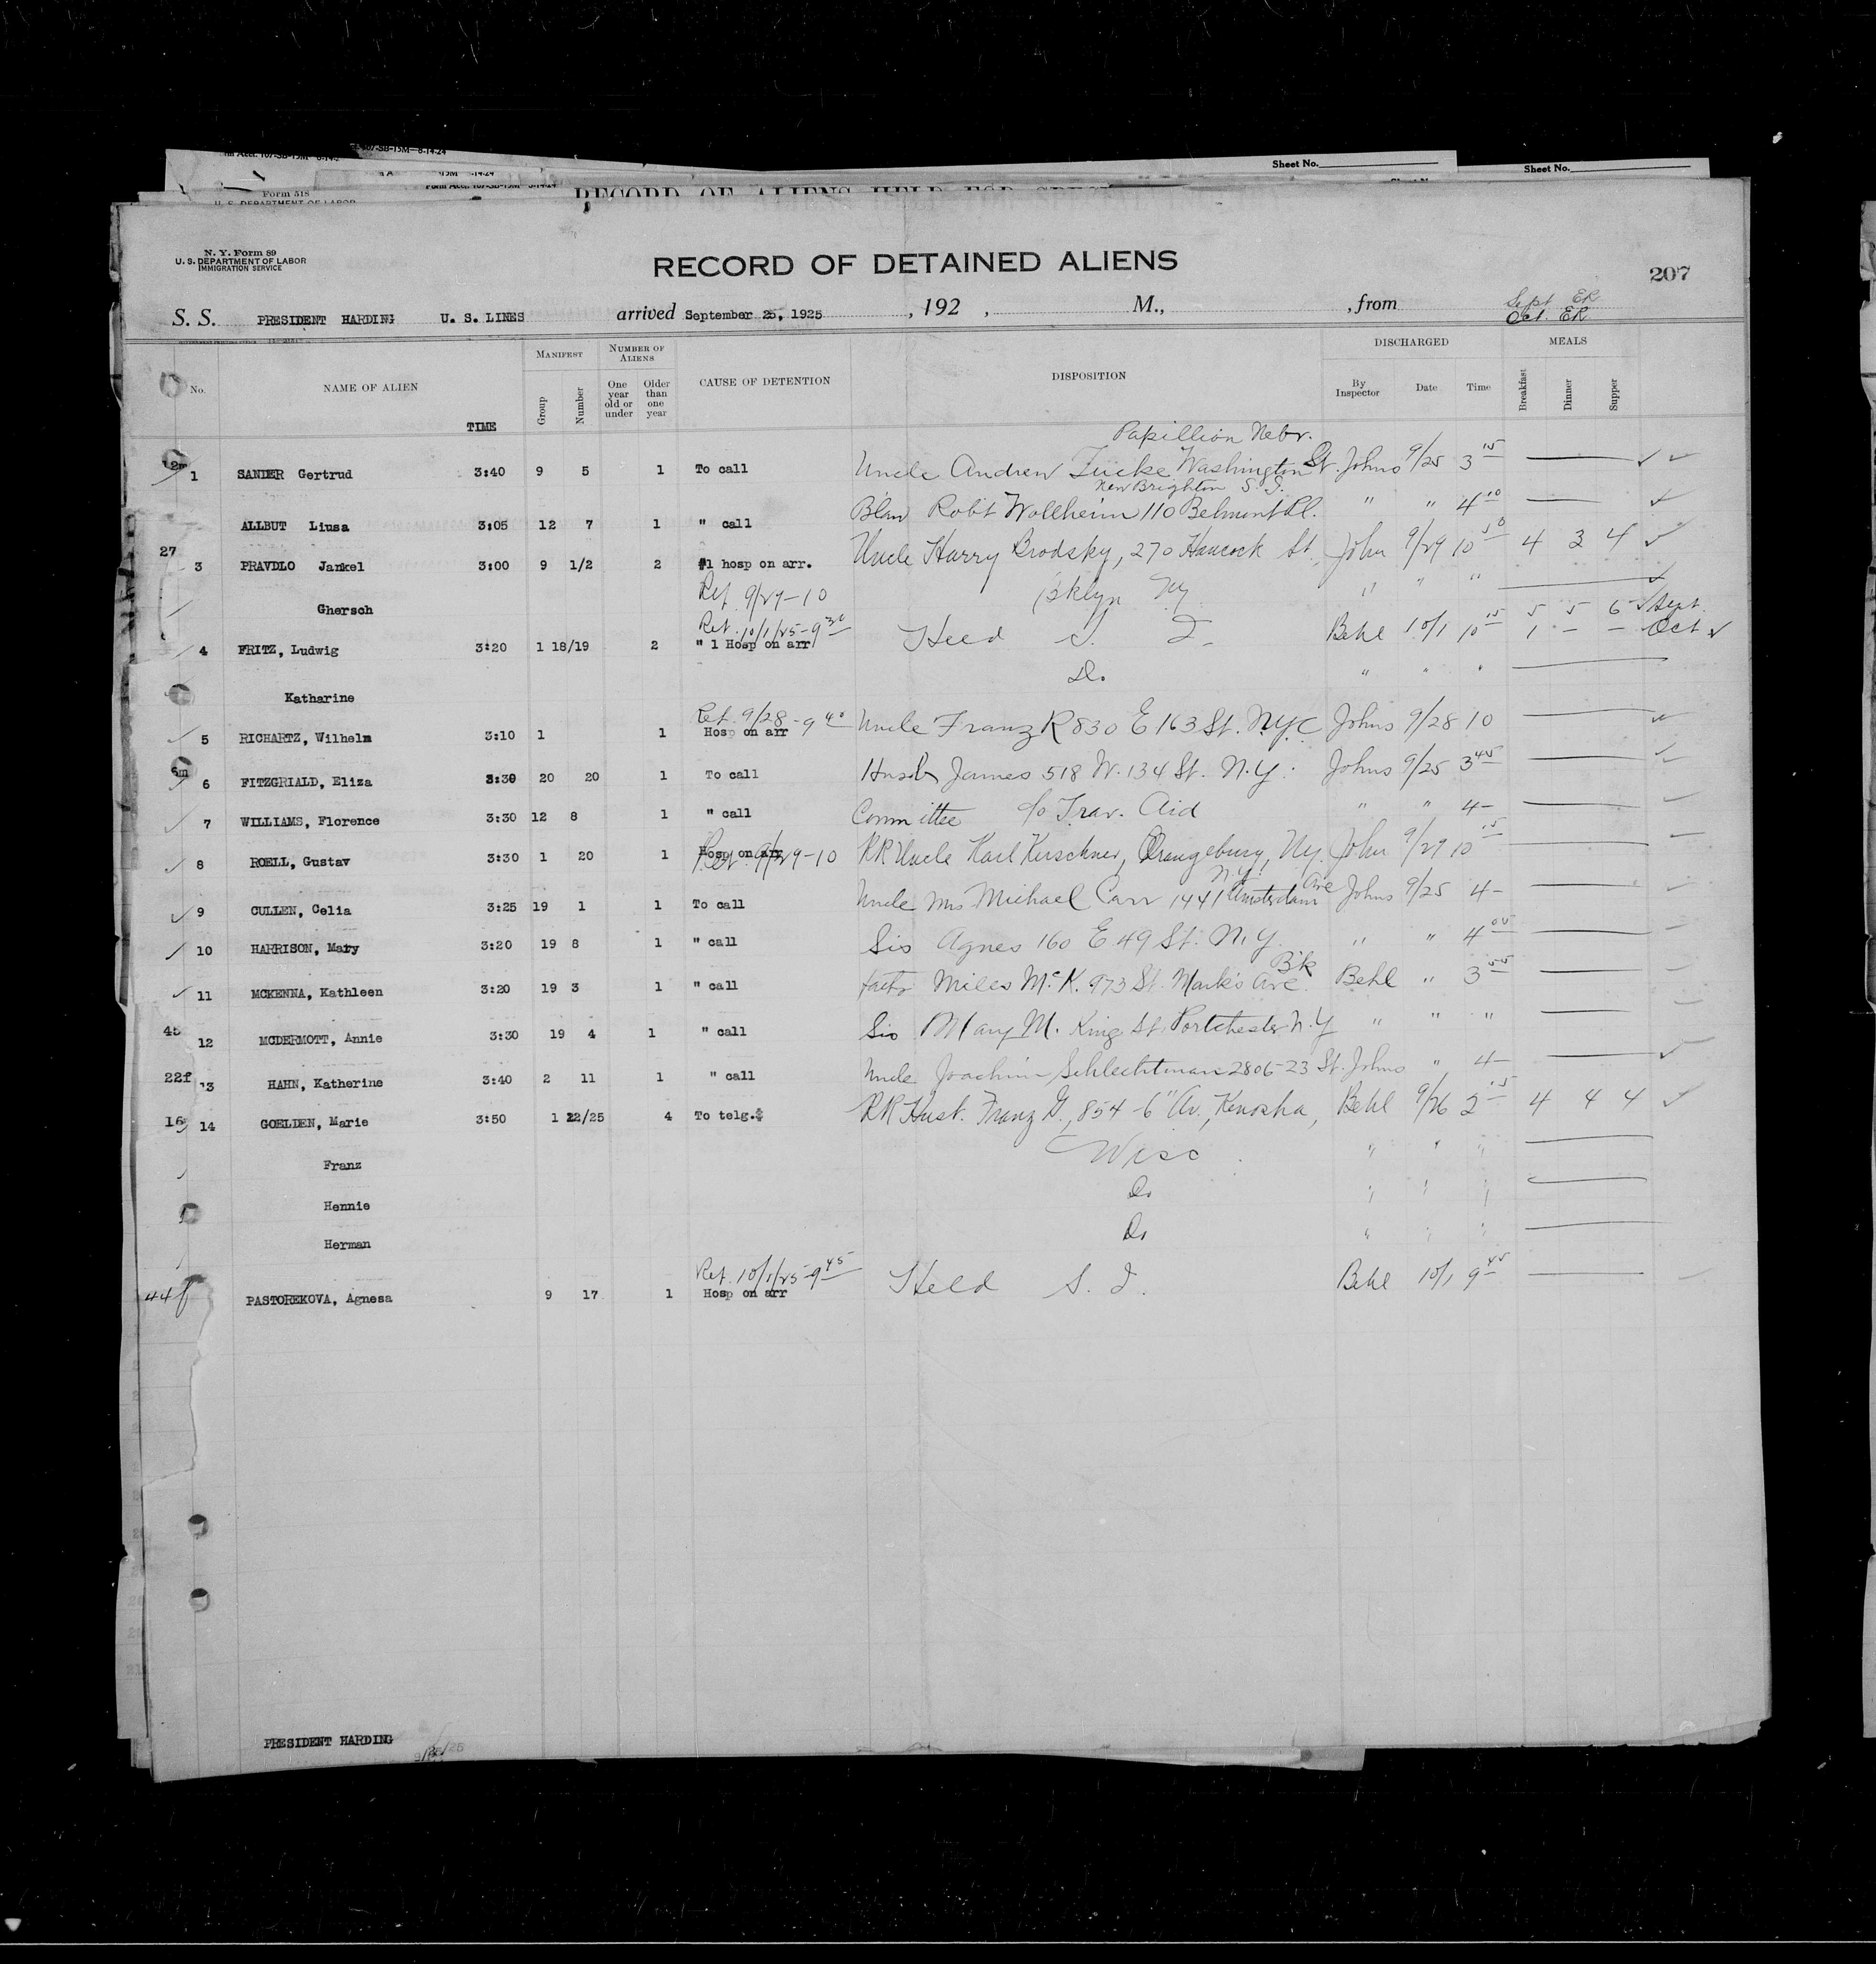 Sheet No.
Sheet No.
Form 518
U. S. DEPARTMENT OF LABOR
N. Y. Form 89
U. S. DEPARTMENT OF LABOR
IMMIGRATION SERVICE
RECORD OF DETAINED ALIENS
207
S. S. PRESIDENT HARDING U. S. LINES arrived September 25, 1925 , 192 , M., , from
Sept ER
Oct. ER
No. NAME OF ALIEN TIME MANIFEST Group Number NUMBER OF ALIENS One year old or under Older than one year CAUSE OF DETENTION DISPOSITION DISCHARGED By Inspector Date Time MEALS Breakfast Dinner Supper
Papillion Nebr.
12m 1 SANDER Gertrud 3:40 9 5 1 To call Uncle Andrew Washington St. Johns 9/25 3 15
New Brighton S. I.
ALLBUT Liusa 3:05 12 7 1 " call Robt Wollheim 110 Belmont Pl. " " 4 10
27 3 PRAVDLO Jankel 3:00 9 1/2 2 #1 hosp on arr. Uncle Harry Brodsky, 270 Hancock St. John 9/29 10 50 4 3 4
Ghersch Ret 9/29-10 Bklyn Ny " " "
Ret. 10/1/25-9 30
4 FRITZ, Ludwig 3:20 1 18/19 2 " 1 Hosp on arr Held S. I. Behl 10/1 10 15 5 5 6 Sept.
1 - - Oct
Katharine Do. " " "
Ret. 9/28-9 40
5 RICHARTZ, Wilhelm 3:10 1 1 Hosp on arr Uncle Franz R 830 E 163 St. N.Y.C Johns 9/28 10
6m 6 FITZGRIALD, Eliza 3:30 20 20 1 To call Husb James 518 W. 134 St. N.Y. Johns 9/25 3 45
7 WILLIAMS, Florence 3:30 12 8 1 " call Committee c/o Trav. Aid " " 4-
8 ROELL, Gustav 3:30 1 20 1 Hosp on arr Ret. 9/29-10 RR Uncle Karl Kirschner, Orangeburg, Ny. John 9/29 10 15
N.Y.
9 CULLEN, Celia 3:25 19 1 1 To call Uncle Mrs Michael Carr 1441 Amsterdam Ave Johns 9/25 4-
10 HARRISON, Mary 3:20 19 8 1 " call Sis Agnes 160 E. 49 St. N.Y. " " 4 05
11 MCKENNA, Kathleen 3:20 19 3 1 " call fath Miles McK. 973 St. Mark's Ave. Bk Behl " 3 55
45 12 MCDERMOTT, Annie 3:30 19 4 1 " call Sis Mary M. King St. Portchester N.Y " " "
22f 13 HAHN, Katherine 3:40 2 11 1 " call Uncle Joachim Schlechtman 2806-23 St. Johns " 4-
16 14 GOELDEN, Marie 3:50 1 22/25 4 To telg.$ RR Husb. Franz G., 854-6" Av., Kenosha, Behl 9/26 2 15 4 4 4
Franz Wisc. " " "
Hennie Do " " "
Herman Do " " "
Ret. 10/1/25-9 45
44f PASTOREKOVA, Agnesa 9 17 1 Hosp on arr Held S. I. Behl 10/1 9 45
PRESIDENT HARDING